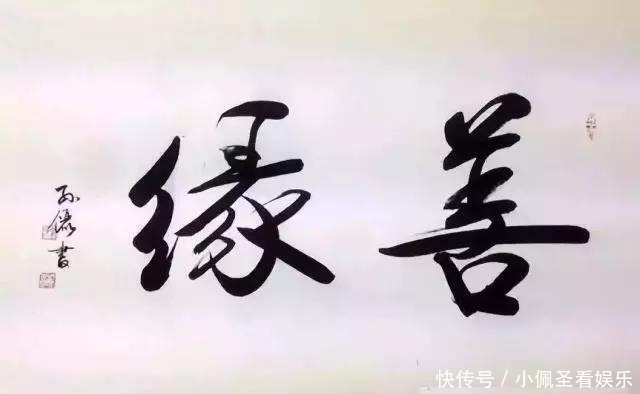 善缘
孙俪书
快传号／小佩圣看娱乐